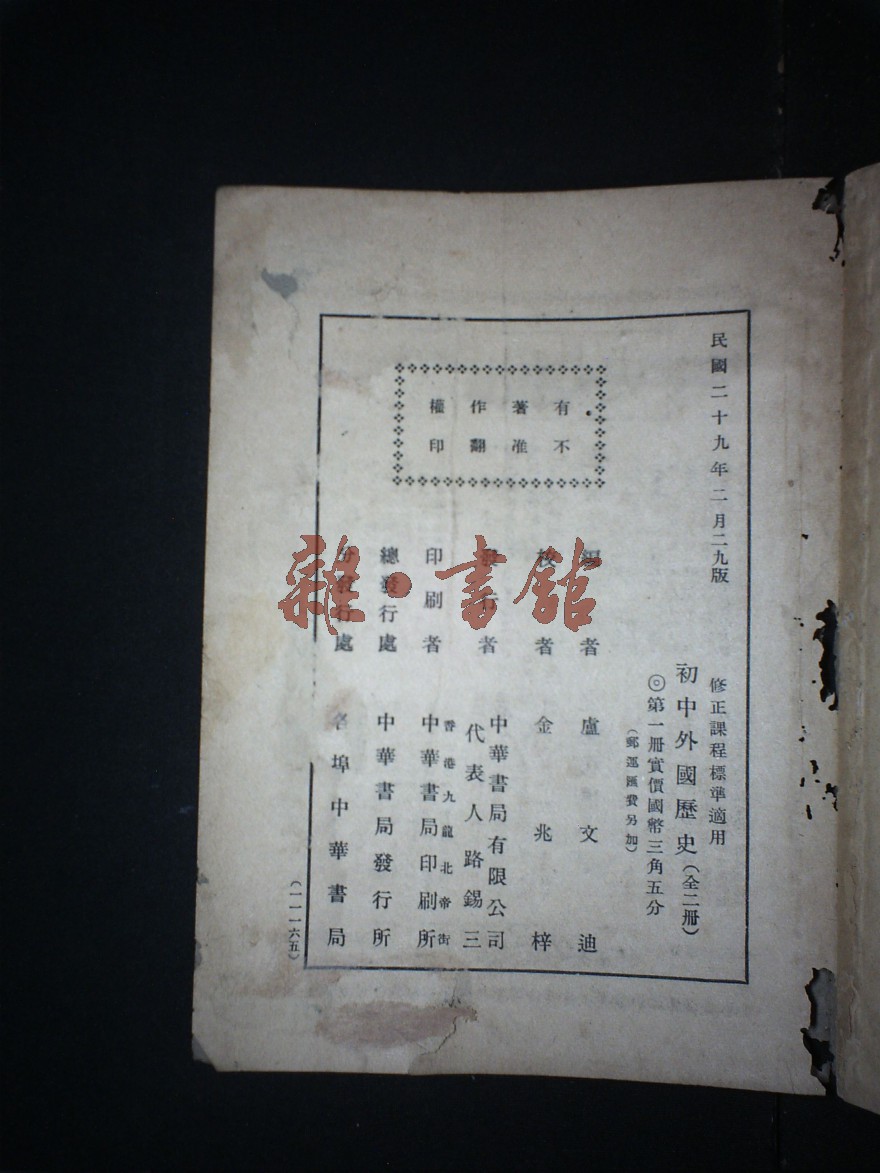 民國二十九年二月二九版
修正課程標準適用
初中外國歷史(全二冊)
◎第一冊實價國幣三角五分
(郵運匯費另加)
有著作權
不准翻印
編者 盧文迪
校者 金兆梓
發行者 中華書局有限公司
代表人路錫三
印刷者 香港九龍北帝街
中華書局印刷所
總發行處 中華書局發行所
分發行處 各埠中華書局
(一一一六五)
雜·書館